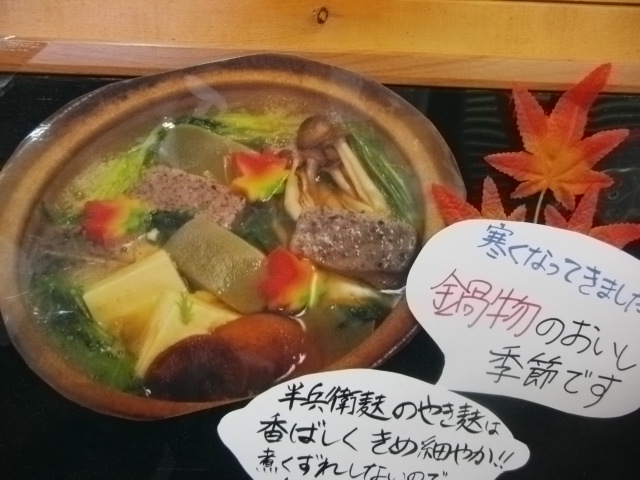 寒くなってきました
鍋物のおいし
季節です
半兵衛麸のやき麸は
香ばしくきめ細やか!!
煮くずれしないので